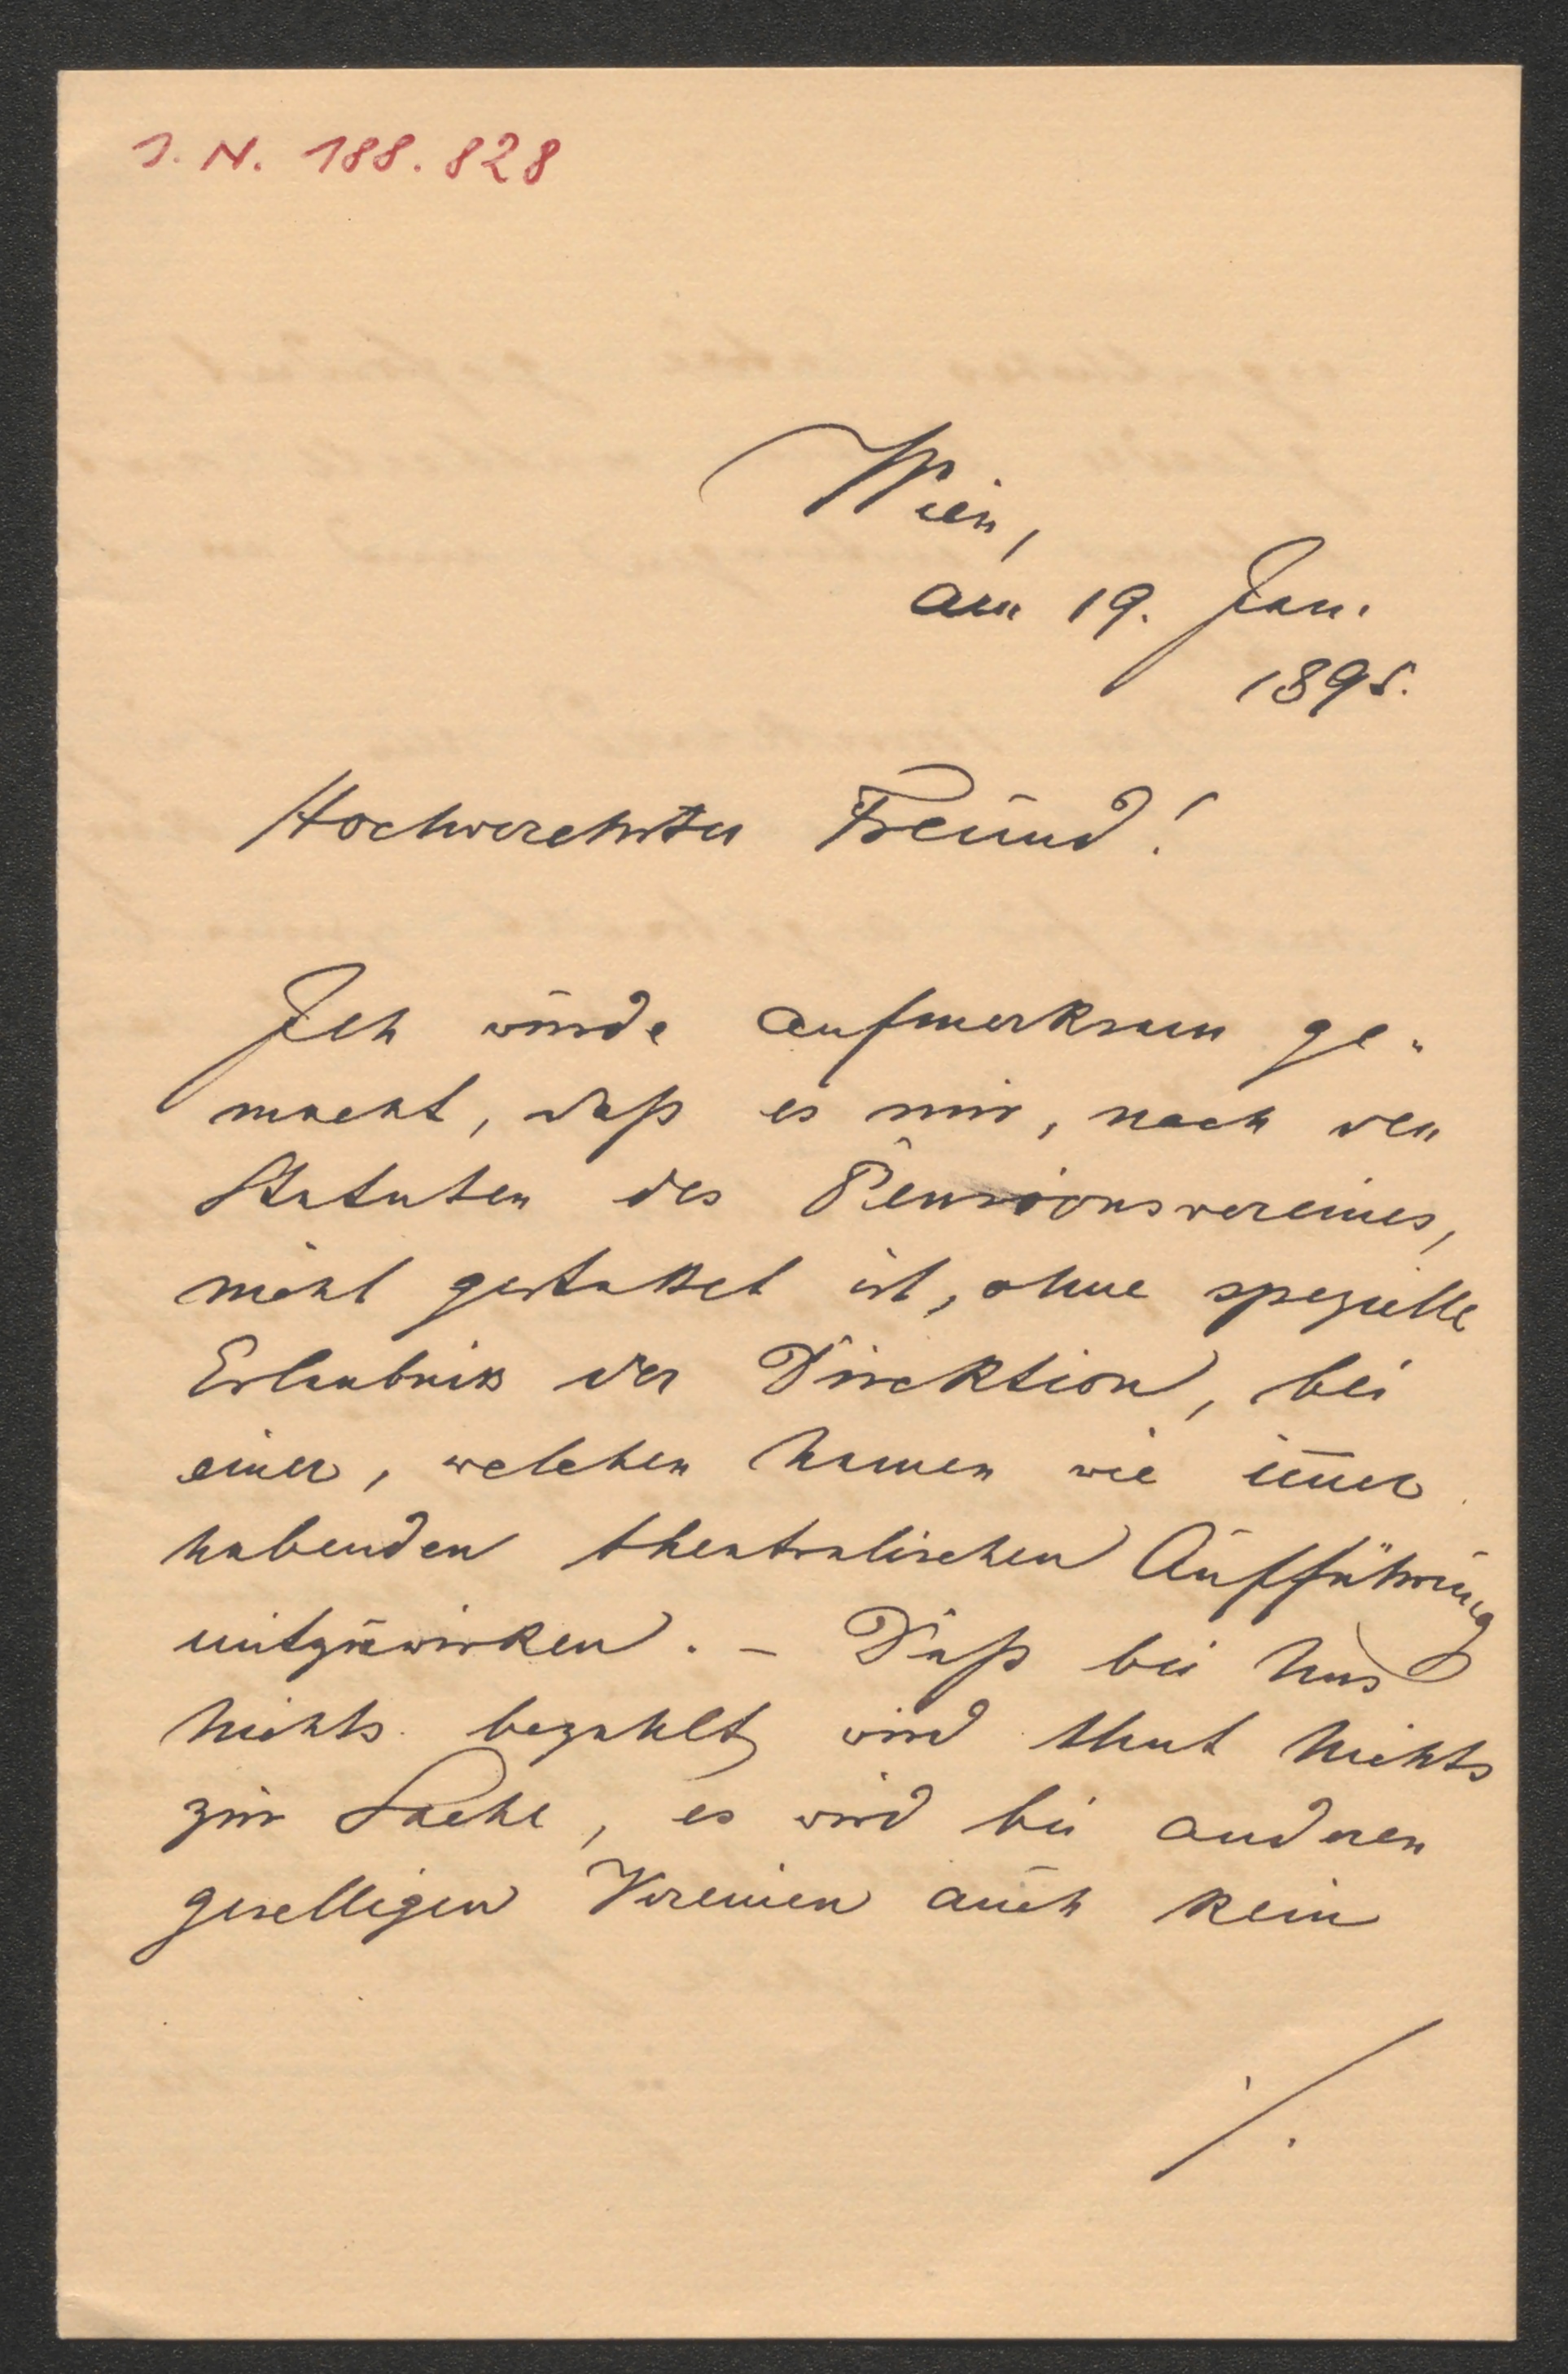 J. N. 188.828
Wien,
am 19. Jan.
1895.
Hochverehrter Freund!
Ich wurde aufmerksam ge-
macht, daß es mir, nach den
Statuten des Pensionsvereines,
nicht gestattet ist, ohne spezielle
Erlaubniß der Direktion, bei
einer, welchen Namen wie im̅er
habenden theatralischen Aufführung
mitzuwirken. – Daß bei Uns
nichts bezahlt wird thut nichts
zur Sache, es wird bei anderen
geselligen Vereinen auch kein
./.